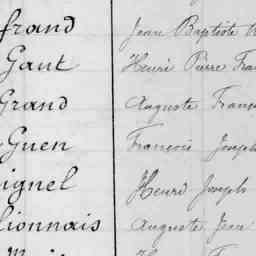 frand Jean Baptiste
Gaut Henri Pierre Fran
Grand Auguste Franç
Guen François Joseph
ignel Henri Joseph
lionnais Auguste Jean